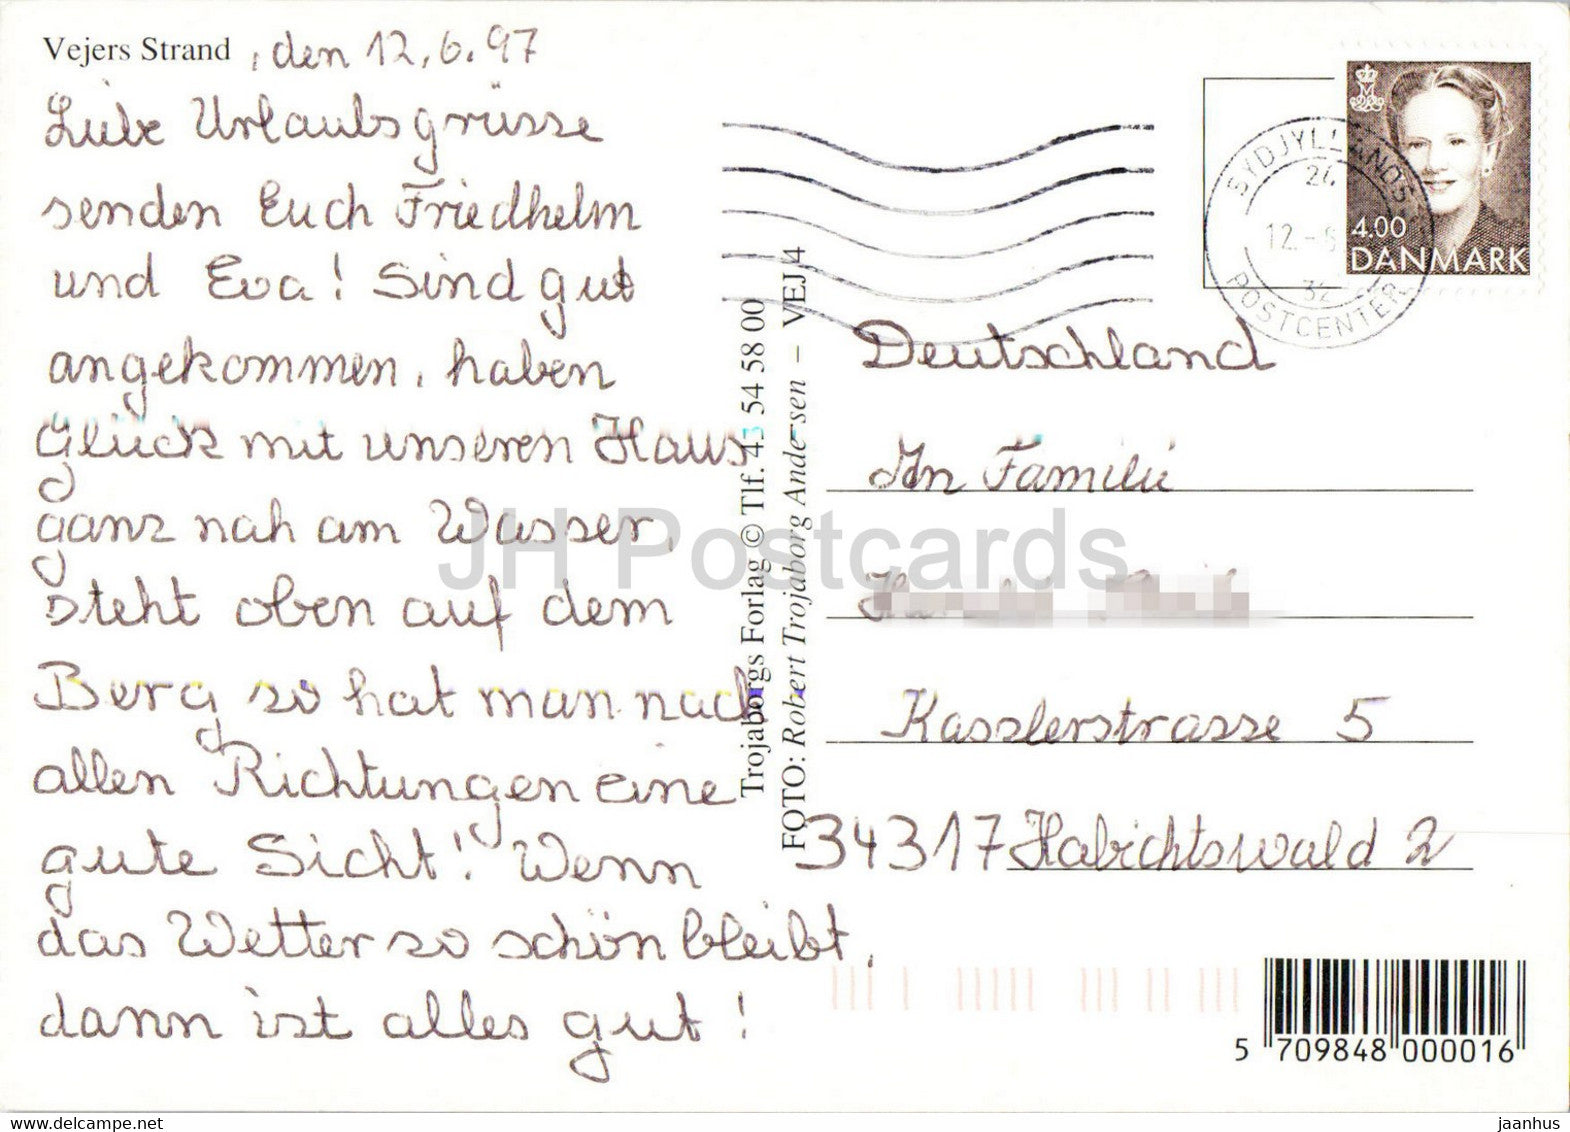 Vejers Strand, den 12.6.97
Liebe Urlaubsgrüsse
senden Euch Friedhelm
und Eva! Sind gut
angekommen, haben
Glück mit unseren Haus
ganz nah am Wasser,
steht oben auf dem
Berg so hat man nach
allen Richtungen eine
gute Sicht! Wenn
das Wetter so schön bleibt,
dann ist alles gut!
Trojaborgs Forlag © Tlf. 43 54 58 00
FOTO: Robert Trojaborg Andersen – VEJ 4
SYDJYLLANDS
24
12.-6
32
POSTCENTER
4.00
DANMARK
Deutschland
An Familie
Kasslerstrasse 5
34317 Habichtswald 2
5 709848 000016
JH Postcards
jaanhus